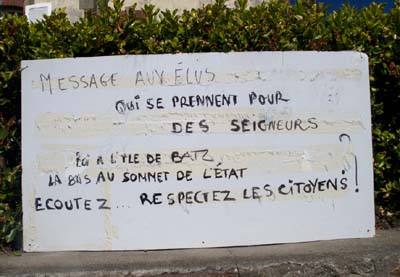 MESSAGE AUX ÉLUS
QUI SE PRENNENT POUR
DES SEIGNEURS
ICI A L'ILE DE BATZ
LA BAS AU SOMMET DE L'ÉTAT
ECOUTEZ... RESPECTEZ LES CITOYENS !?